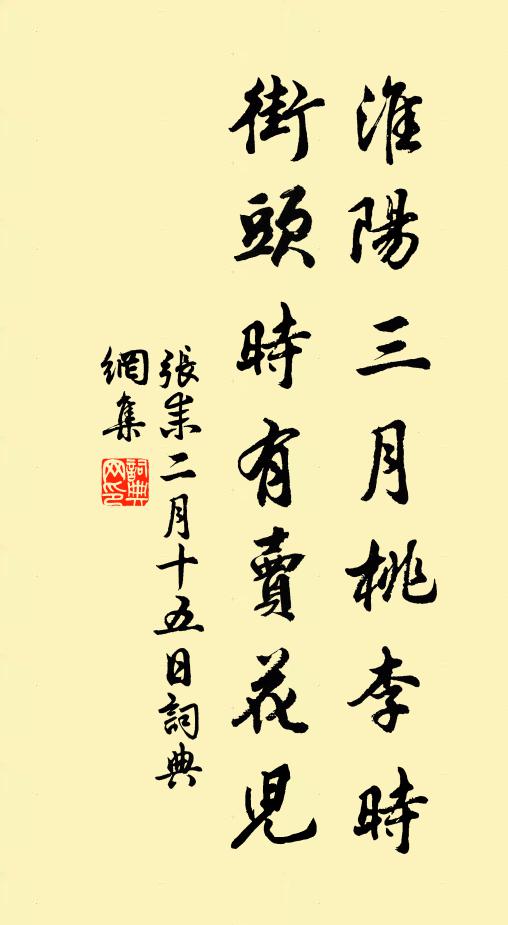 淮陽三月桃李時
街頭時有賣花兒
張耒二月十五日詞典
網集
詞典
网印